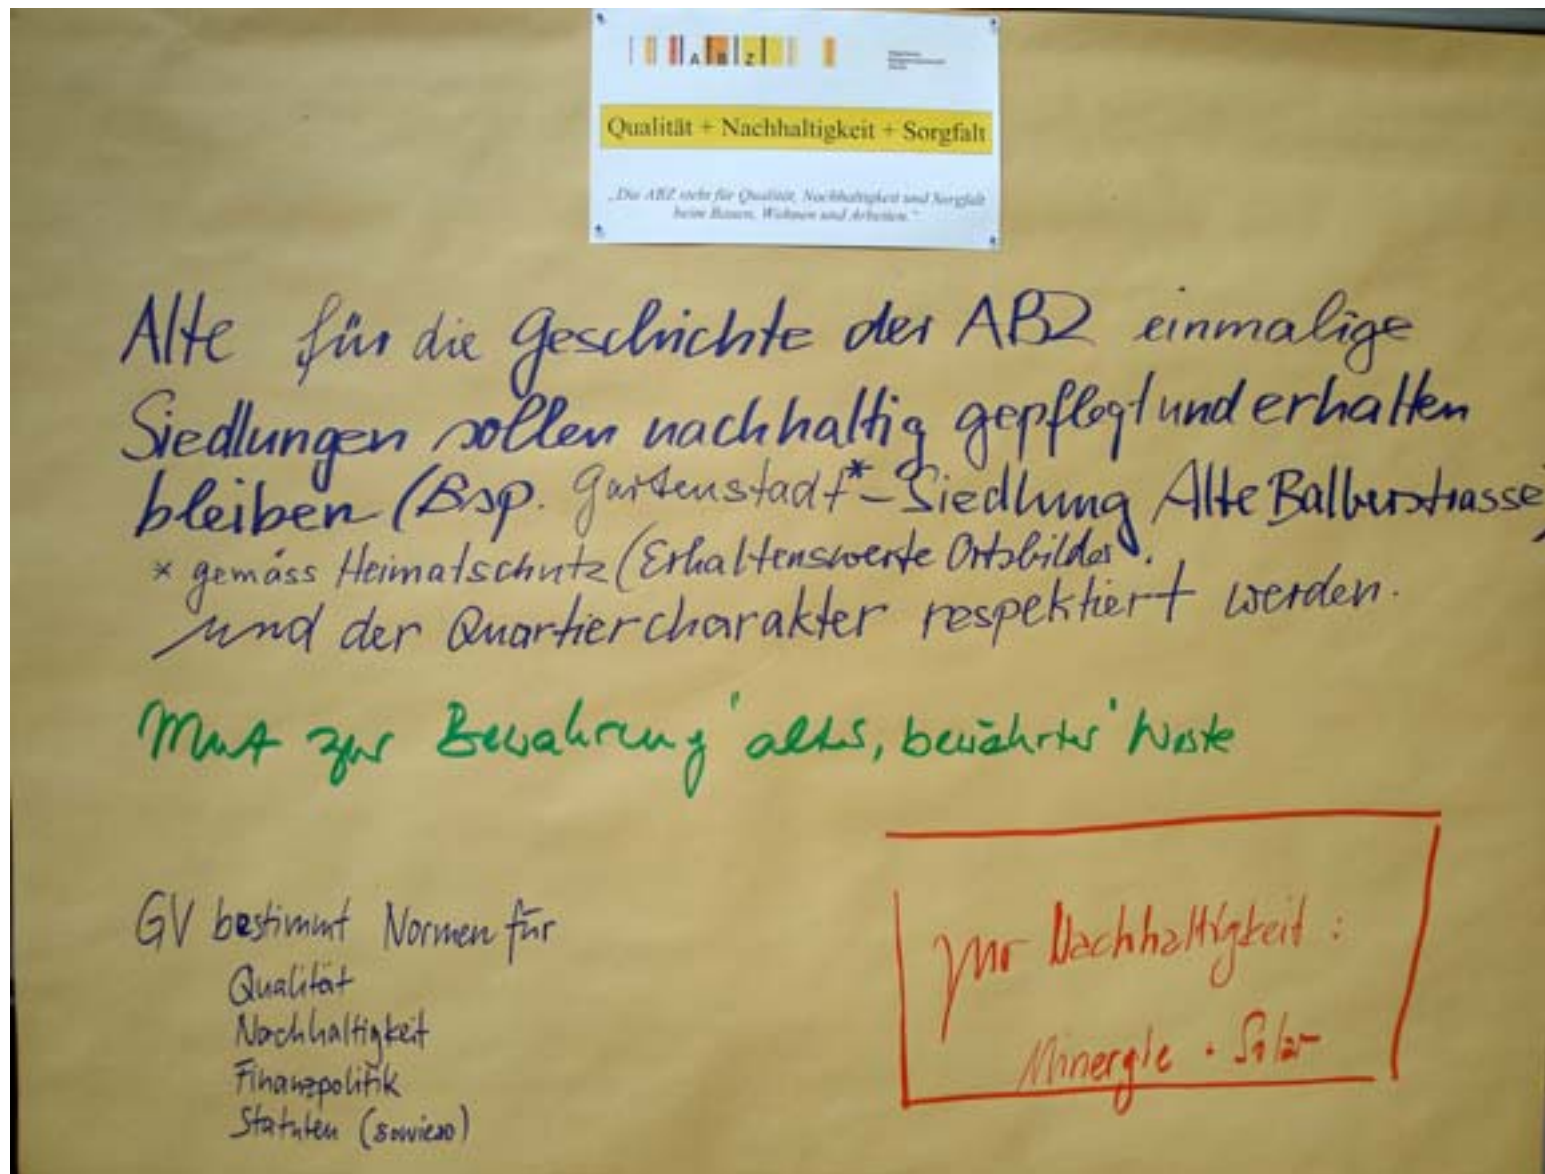 ABZ
Qualität + Nachhaltigkeit + Sorgfalt
„Die ABZ steht für Qualität, Nachhaltigkeit und Sorgfalt
beim Bauen, Wohnen und Arbeiten."
Alte für die Geschichte der ABZ einmalige
Siedlungen sollen nachhaltig gepflegt und erhalten
bleiben (Bsp. Gartenstadt*-Siedlung Alte Balberstrasse)
* gemäss Heimatschutz (Erhaltenswerte Ortsbilder.
und der Quartiercharakter respektiert werden.
Mut zur Bewahrung 'alter, bewährter' Werte
GV bestimmt Normen für
Qualität
Nachhaltigkeit
Finanzpolitik
Statuten (sowieso)
zur Nachhaltigkeit:
Minergie · Solar